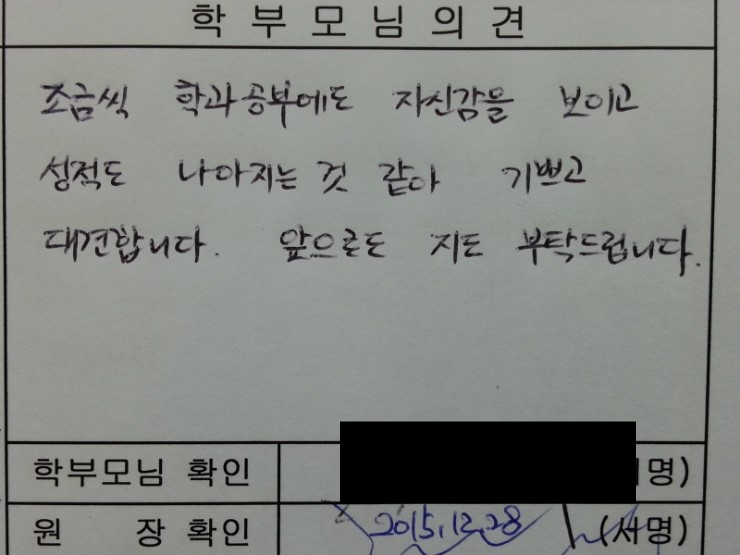 학부모님의견
조금씩 학과공부에도 자신감을 보이고
성적도 나아지는 것 같아 기쁘고
대견합니다. 앞으로도 지도 부탁드립니다.
학부모님 확인 명)
원 장 확인 2015.12.28 (서명)